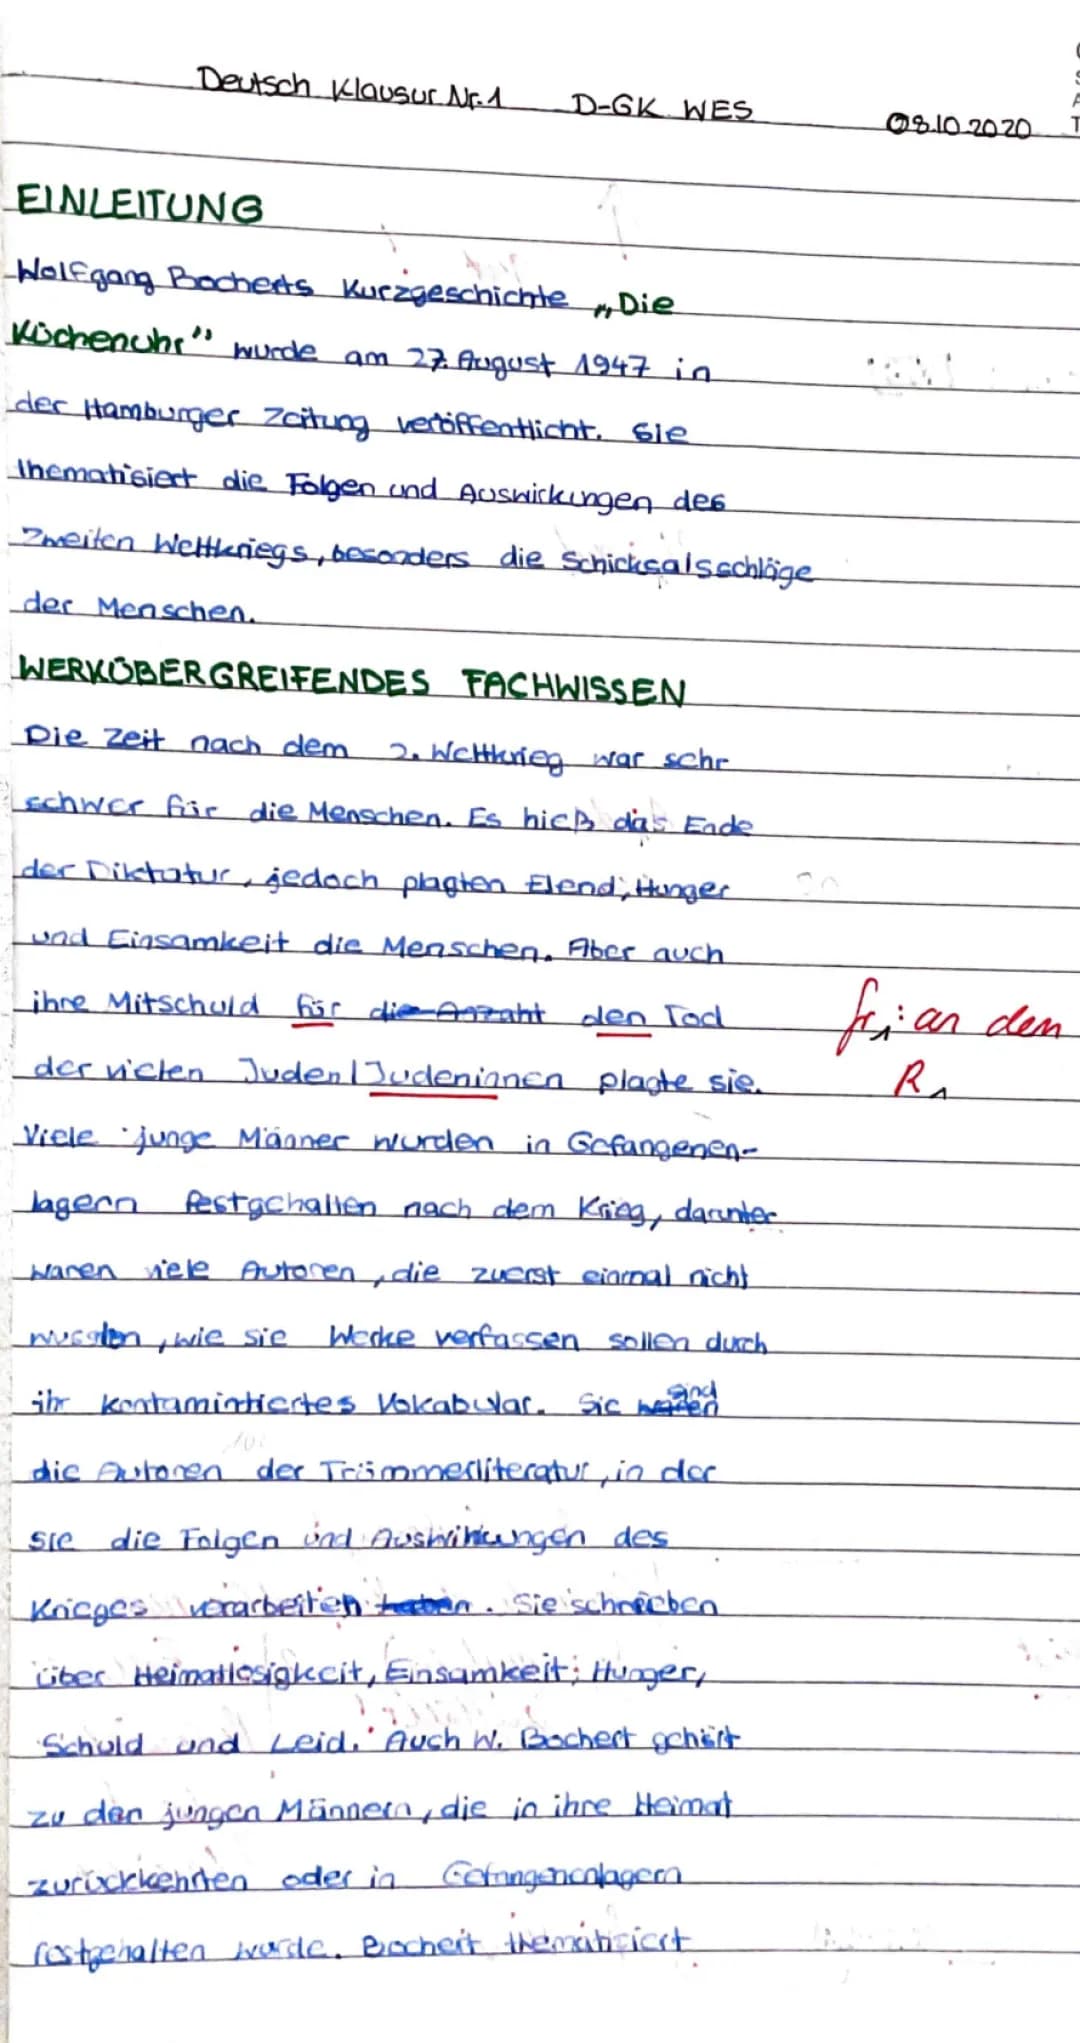 Deutsch Klausur Nr. 1 D-GK WES 08.10.2020
EINLEITUNG
Wolfgang Bocherts Kurzgeschichte „Die
Küchenuhr" wurde am 27. August 1947 in
der Hamburger Zeitung veröffentlicht. Sie
thematisiert die Folgen und Auswirkungen des
Zweiten Weltkriegs, besonders die Schicksalsschläge
der Menschen.
WERKÜBERGREIFENDES FACHWISSEN
Die Zeit nach dem 2. Weltkrieg war sehr
schwer für die Menschen. Es hieß das Ende
der Diktatur, jedoch plagten Elend, Hunger
und Einsamkeit die Menschen. Aber auch
ihre Mitschuld für die Anzahl den Tod
fr: an dem
der vielen Juden/Judeninnen plagte sie.
R
Viele junge Männer wurden in Gefangenen-
lagern festgehalten nach dem Krieg, darunter
waren viele Autoren, die zuerst einmal nicht
wussten, wie sie Werke verfassen sollen durch
ihr kontaminiertes Vokabular. Sie sind
die Autoren der Trümmerliteratur, in der
sie die Folgen und Auswirkungen des
Krieges verarbeiten haben. Sie schreiben
über Heimatlosigkeit, Einsamkeit, Hunger,
Schuld und Leid. Auch W. Bochert gehört
zu den jungen Männern, die in ihre Heimat
zurückkehrten oder in Gefangenenlagern
festgehalten wurde. Bochert thematisiert